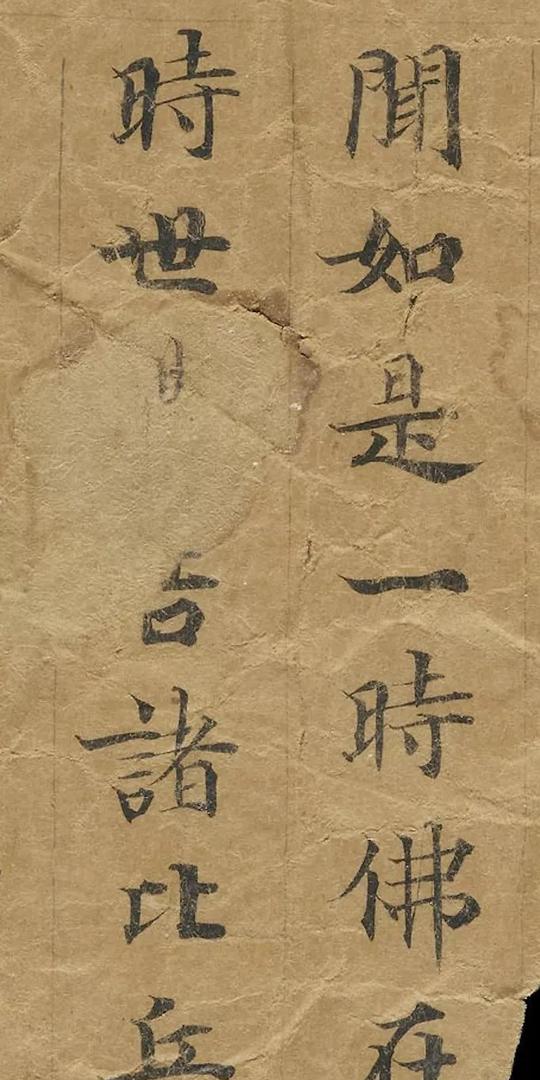 聞如是一時佛在
時世諸比丘